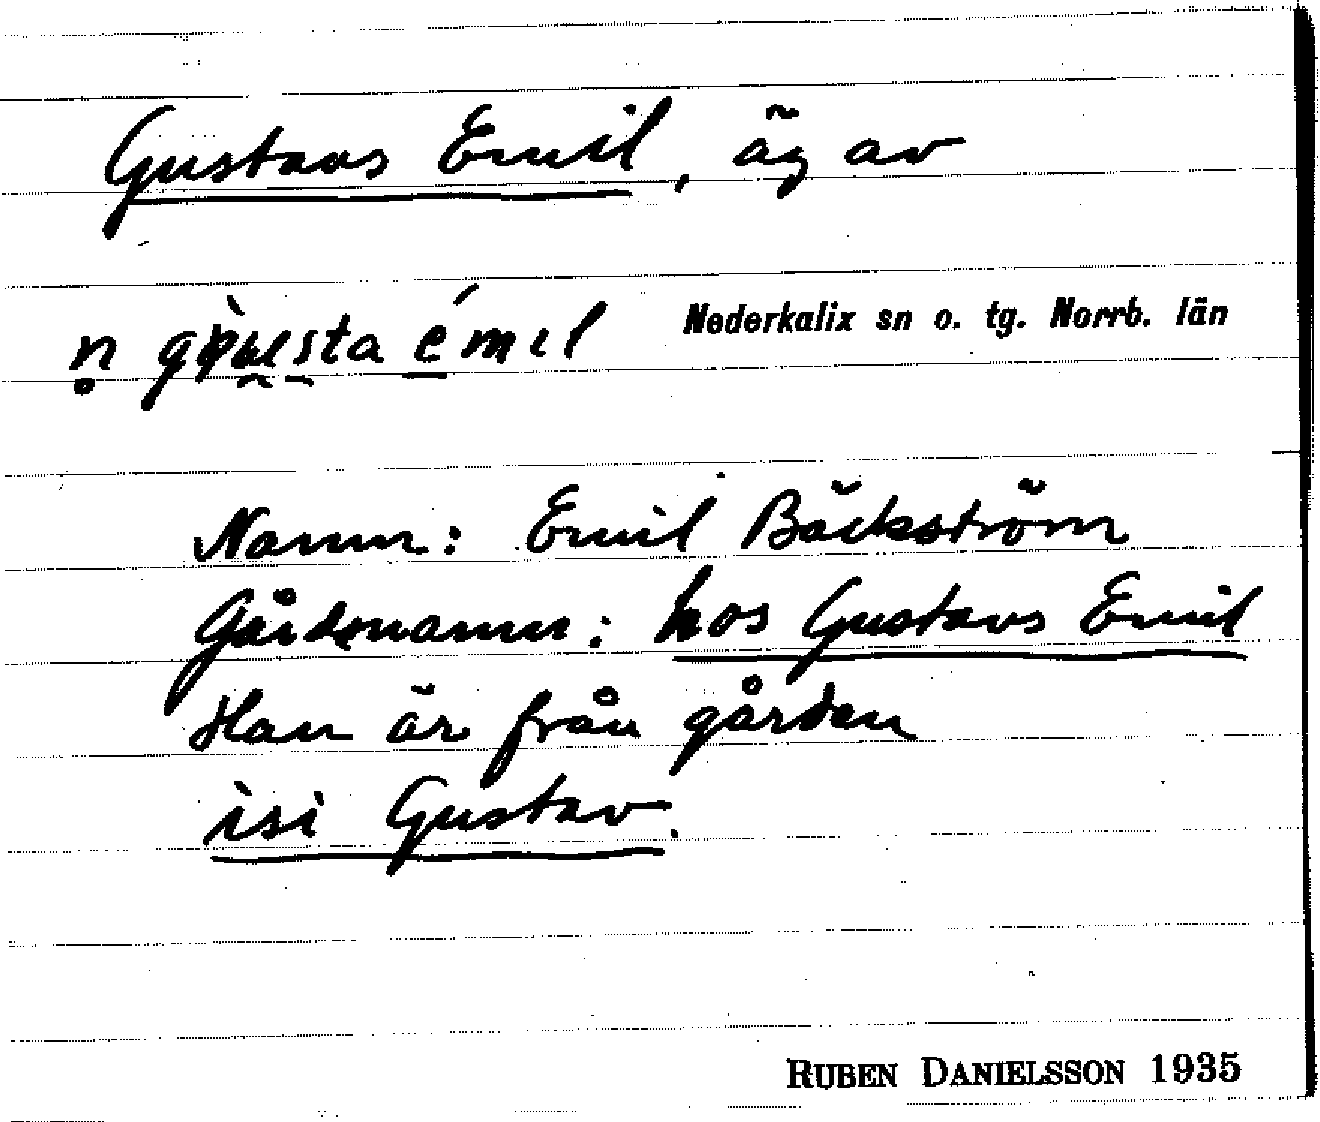 Gustavs Emil, äg av
n̥ gústa émıl
Nederkalix sn o. tg. Norrb. län
Namn: Emil Bäckström
Gårdsnamn: hos Gustavs Emil
Han är från gården
isi Gustav.
RUBEN DANIELSSON 1935